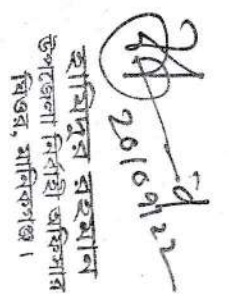 হামিদুর রহমান
উপজেলা নির্বাহী অফিসার
ঘিওর, মানিকগঞ্জ।